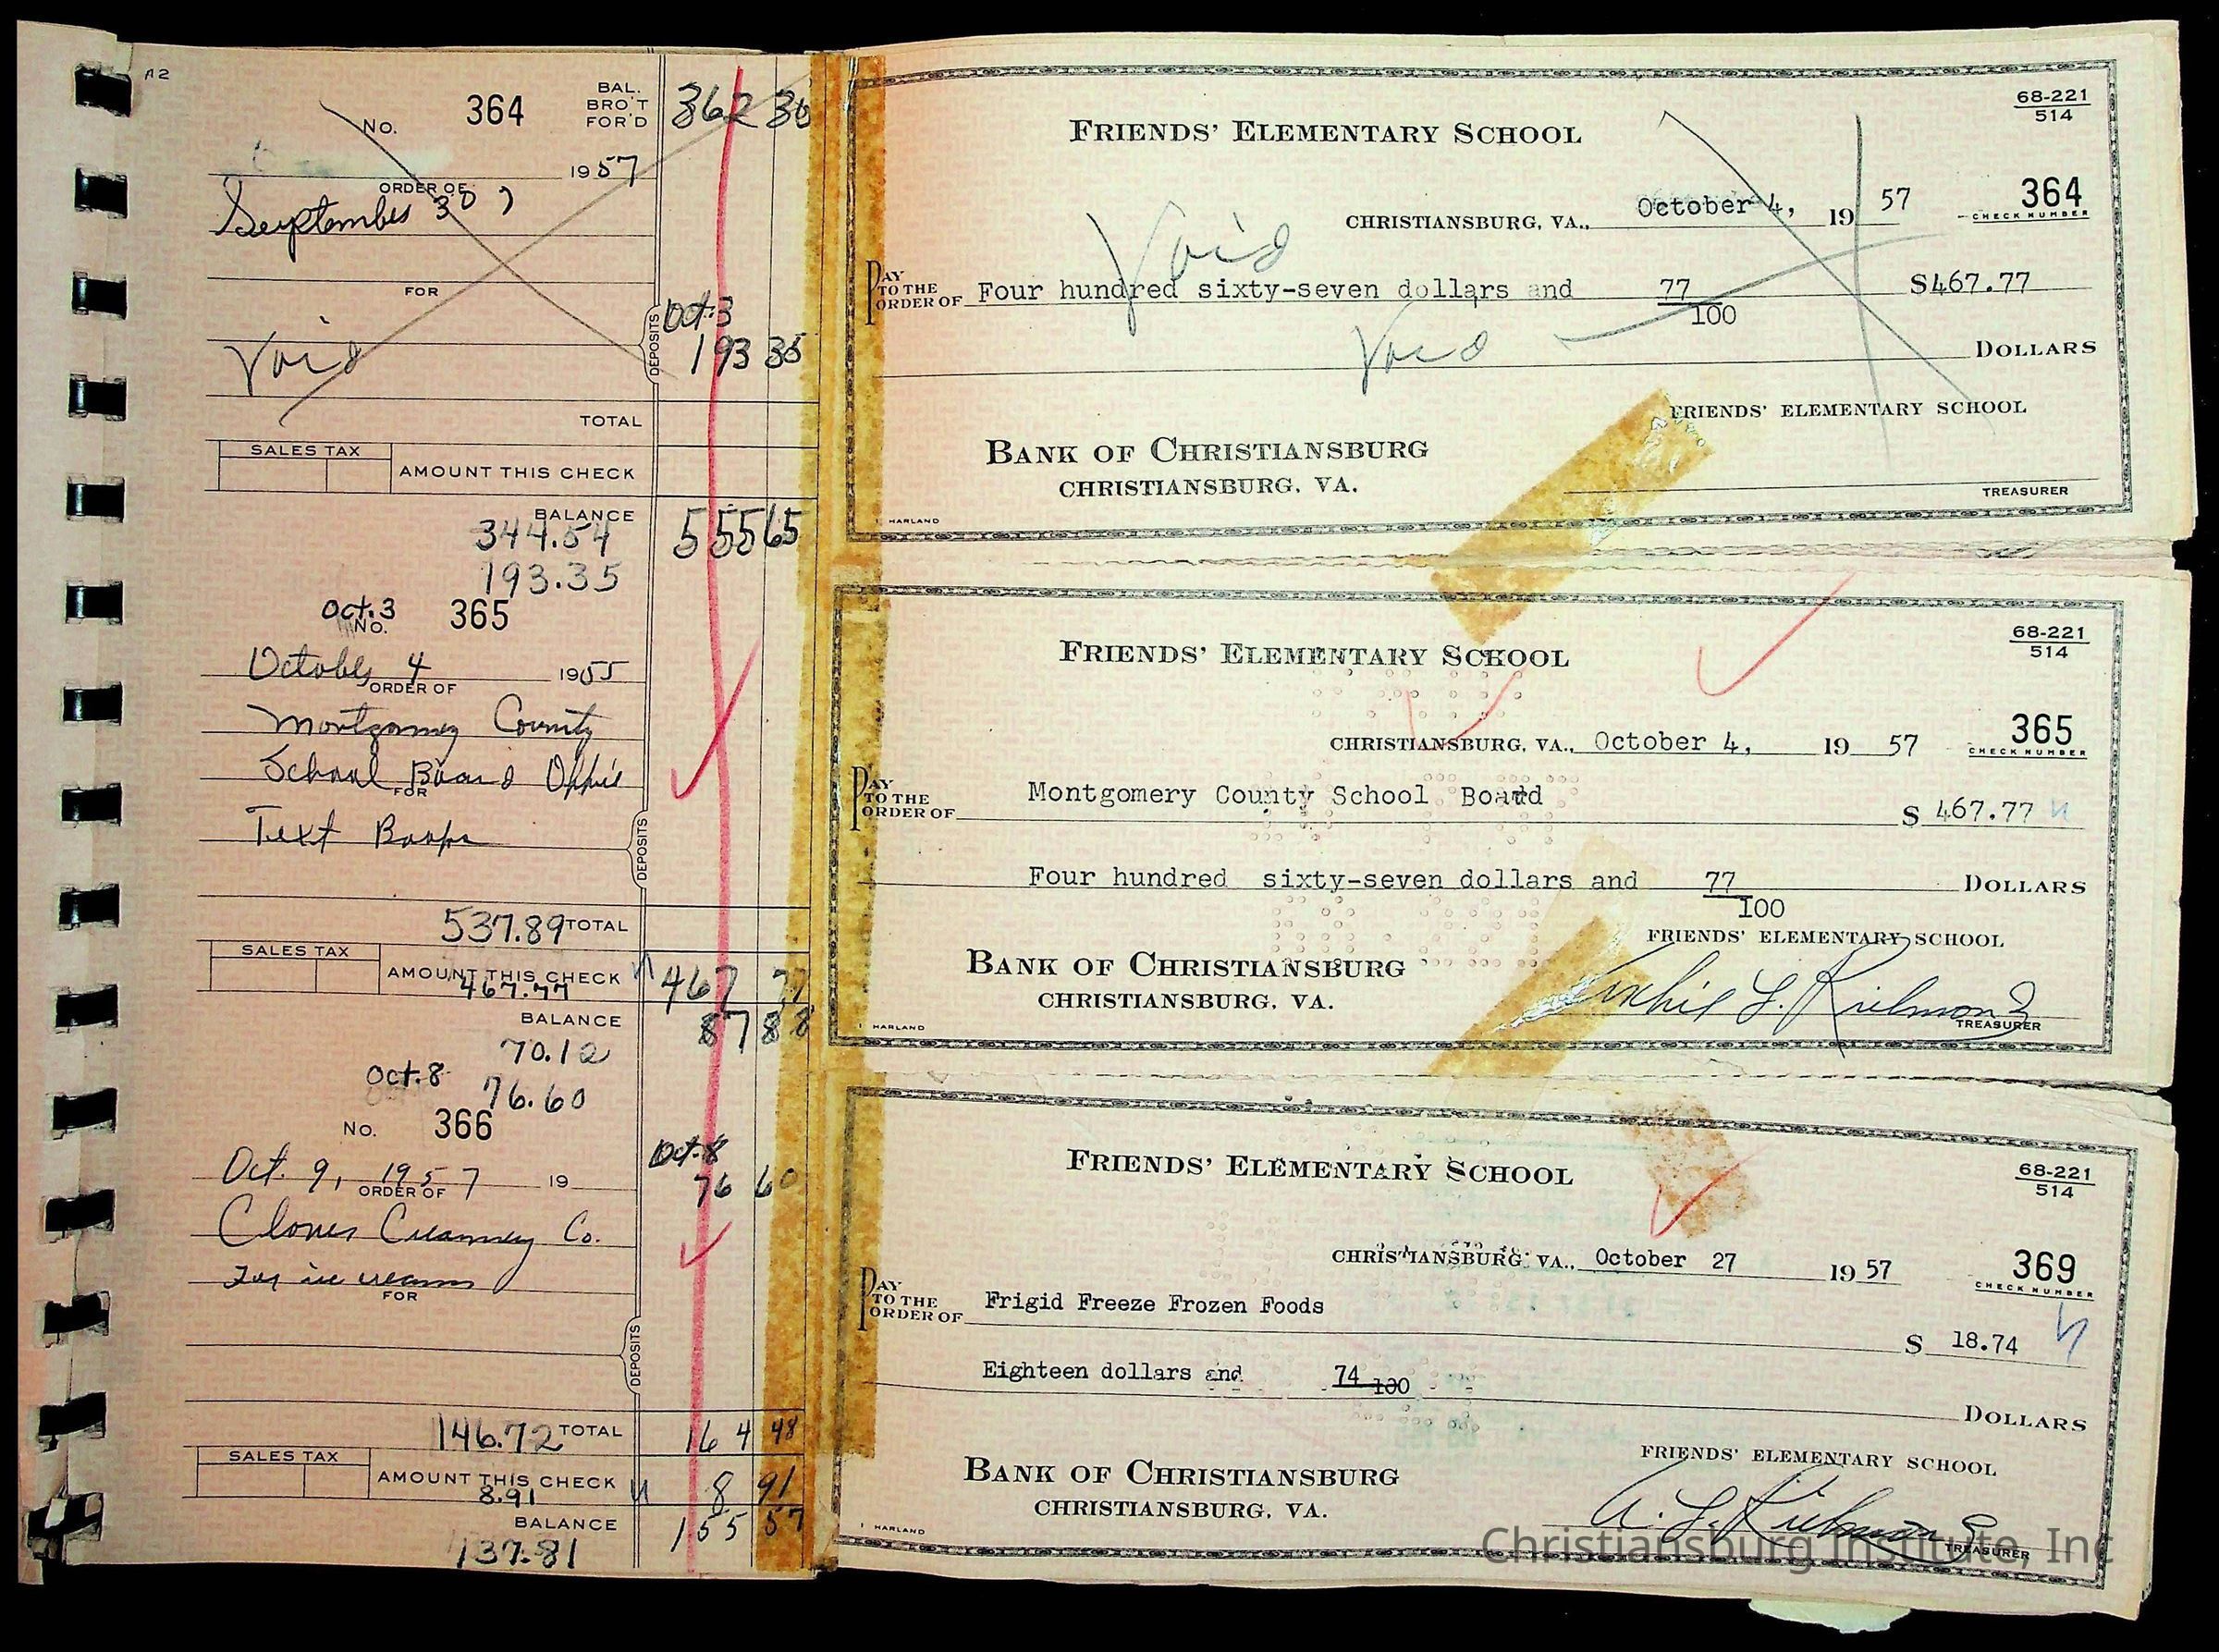 A2
No. 364 BAL. BRO'T FOR'D 362 30
1957
ORDER OF
September 30,
FOR
Void
DEPOSITS Oct. 3
193 35
TOTAL
SALES TAX
AMOUNT THIS CHECK
BALANCE 555 65
344.54
193.35
Oct. 3
No. 365
October 4 1955
ORDER OF
Montgomery County
School Board Office
FOR
Text Books
DEPOSITS
537.89 TOTAL
SALES TAX
AMOUNT THIS CHECK 467 77
467.77
BALANCE 87 88
70.12
Oct. 8
76.60
No. 366
Oct. 8
76 60
Oct. 9, 1957 19
ORDER OF
Clover Creamery Co.
For ice cream
FOR
DEPOSITS
146.72 TOTAL 164 48
SALES TAX
AMOUNT THIS CHECK 8 91
8.91
BALANCE 155 57
137.81
68-221
514
FRIENDS' ELEMENTARY SCHOOL
CHRISTIANSBURG, VA., October 4, 19 57 364
CHECK NUMBER
Void
PAY TO THE ORDER OF Four hundred sixty-seven dollars and 77/100 $467.77
Void DOLLARS
FRIENDS' ELEMENTARY SCHOOL
BANK OF CHRISTIANSBURG
CHRISTIANSBURG, VA.
TREASURER
HARLAND
68-221
514
FRIENDS' ELEMENTARY SCHOOL
CHRISTIANSBURG, VA., October 4, 19 57 365
CHECK NUMBER
PAY TO THE ORDER OF Montgomery County School Board $ 467.77
Four hundred sixty-seven dollars and 77/100 DOLLARS
FRIENDS' ELEMENTARY SCHOOL
BANK OF CHRISTIANSBURG
CHRISTIANSBURG, VA.
Archie L. Richmond
TREASURER
HARLAND
68-221
514
FRIENDS' ELEMENTARY SCHOOL
CHRISTIANSBURG, VA., October 27 19 57 369
CHECK NUMBER
PAY TO THE ORDER OF Frigid Freeze Frozen Foods
$ 18.74
Eighteen dollars and 74/100
DOLLARS
FRIENDS' ELEMENTARY SCHOOL
BANK OF CHRISTIANSBURG
CHRISTIANSBURG, VA.
A. L. Richmond
TREASURER
HARLAND
Christiansburg Institute, Inc